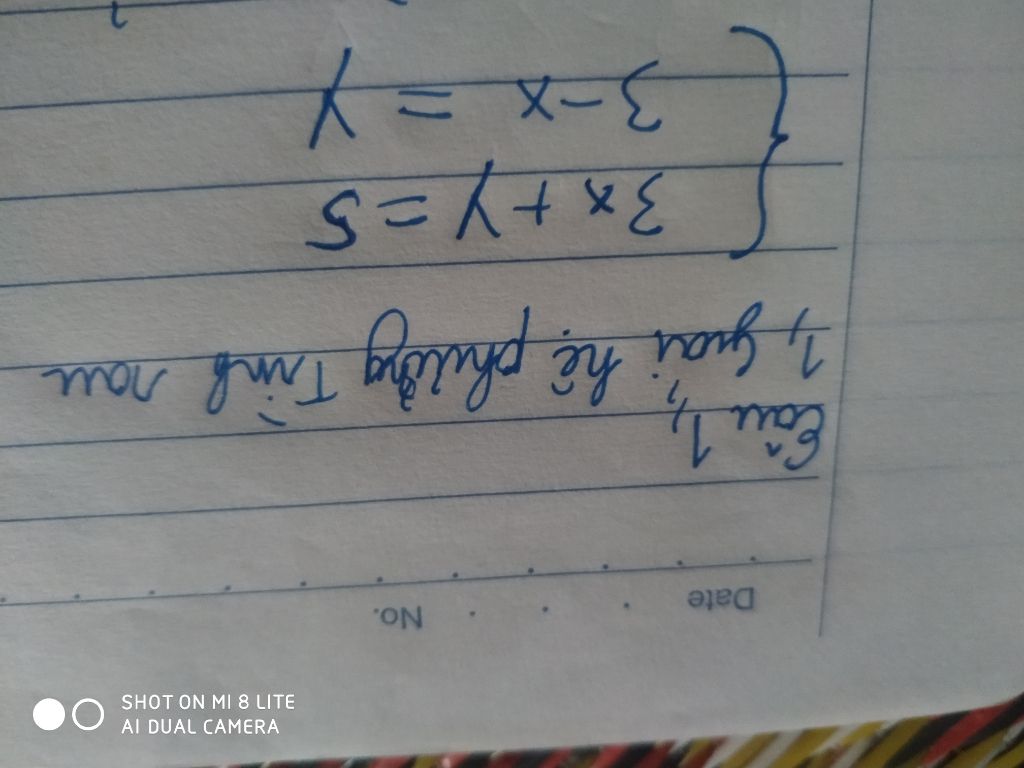 Date No.
Câu 1,
1, giải hệ phương Trình sau
{ 3x + y = 5
3 - x = y
SHOT ON MI 8 LITE
AI DUAL CAMERA